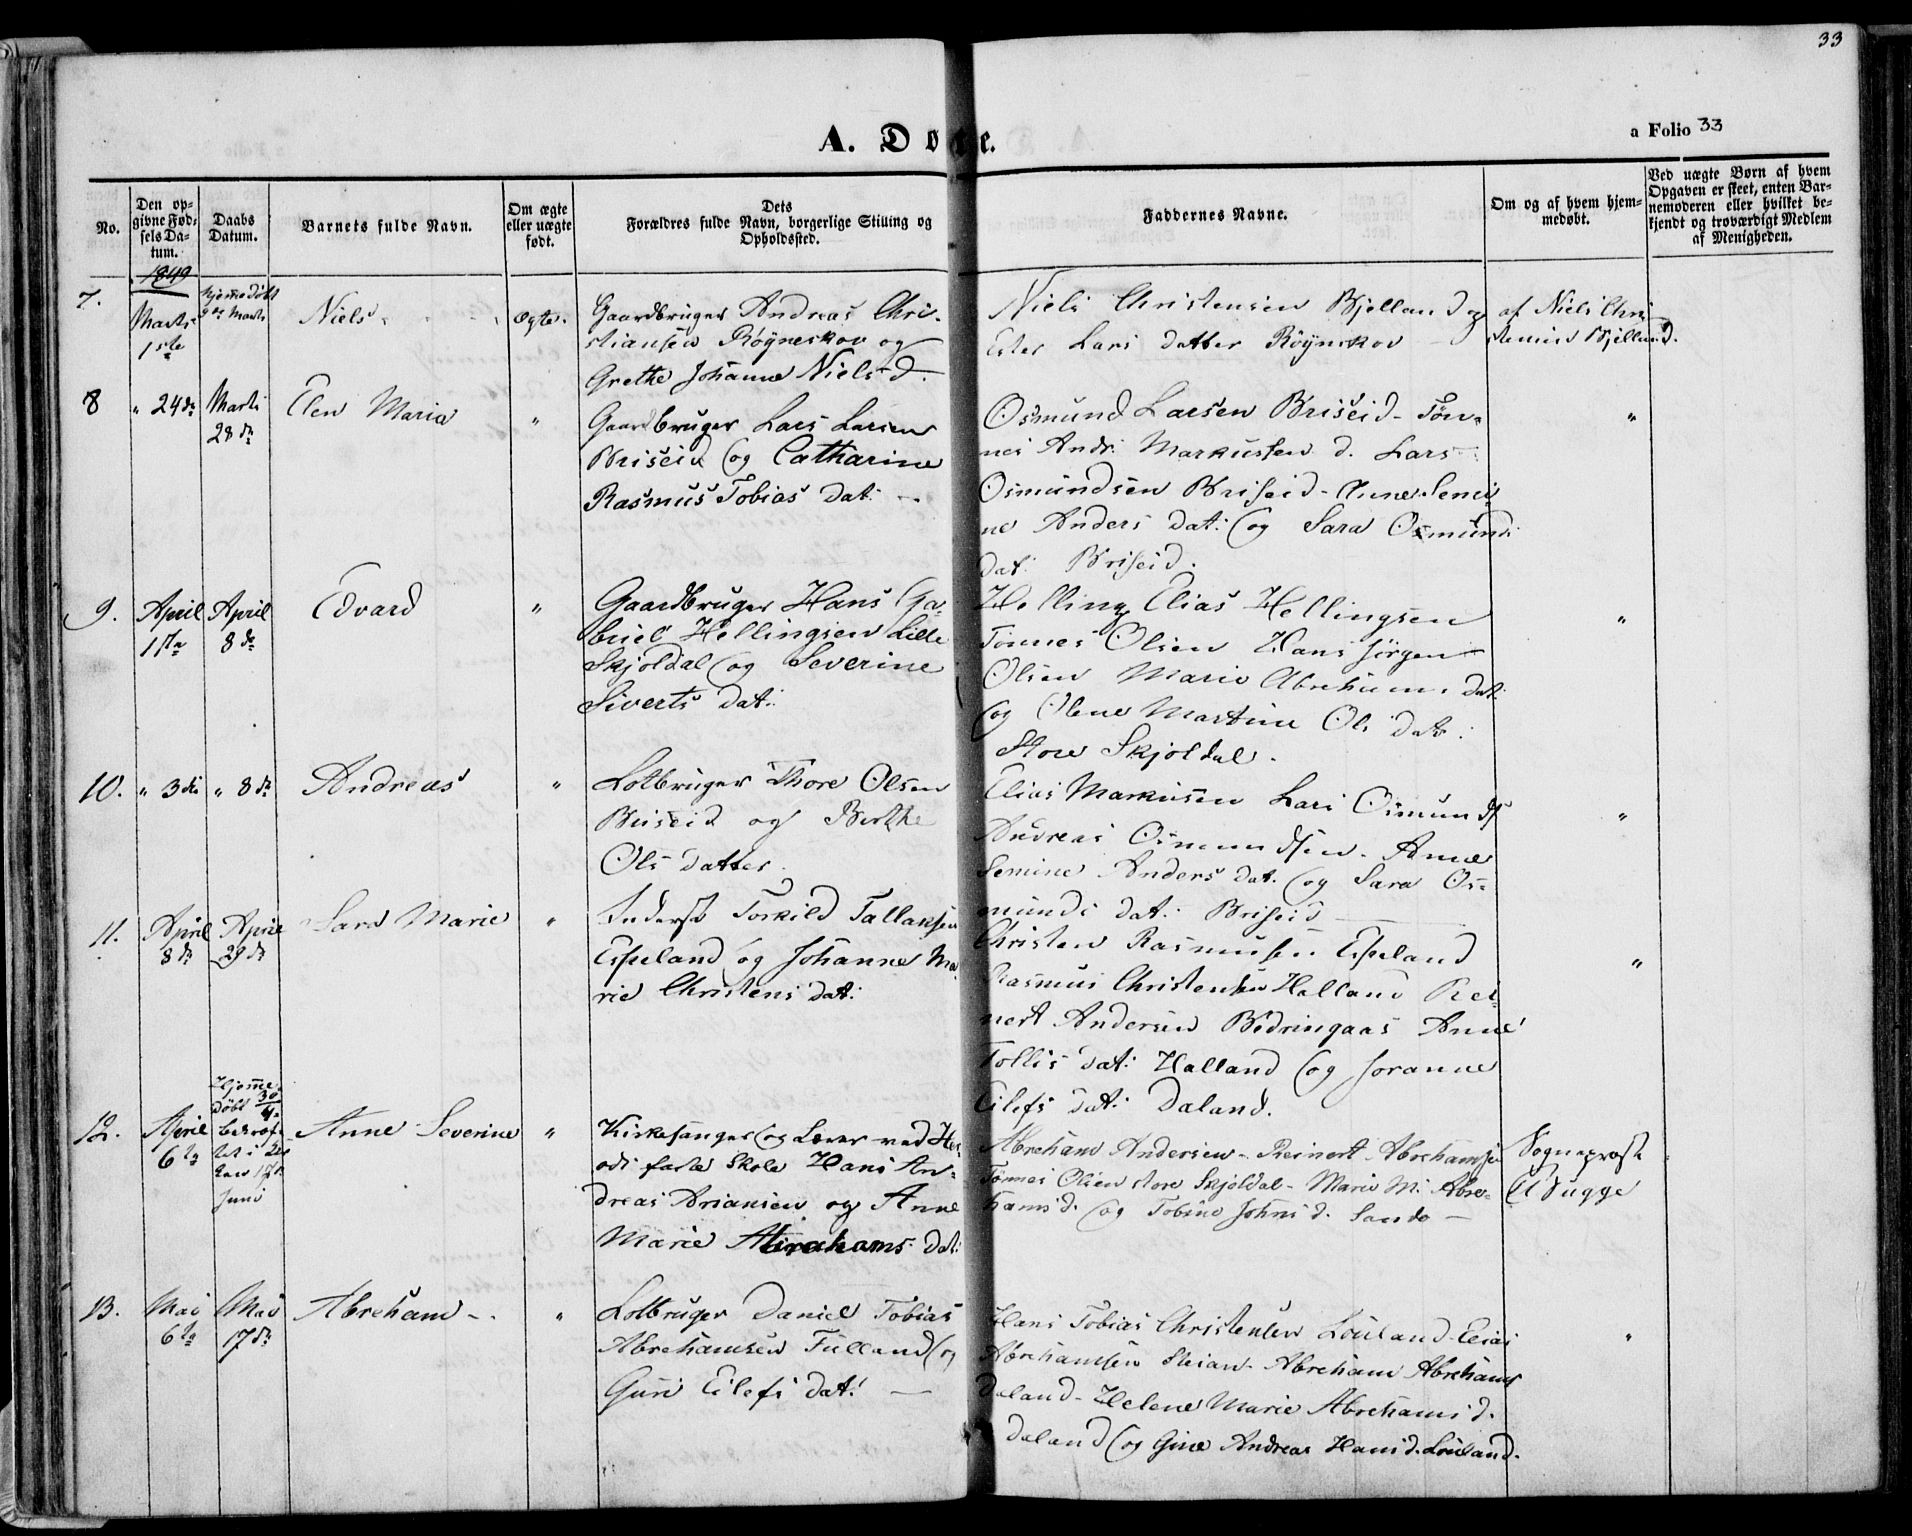 33
A. Døbte.
a Folio 33
No.
Den op-
givne Fød-
sels Da-
tum.
Daabs
Datum.
Barnets fulde Navn.
Om ægte
eller uægte
født.
Dets
Forældres fulde Navn, borgerlige Stilling og
Opholdssted.
Faddernes Navne.
Om og af hvem hjem-
medøbt.
Ved uægte Børn af hvem
Opgaven er skeet, enten Bar-
nemoderen eller hvilket be-
kjendt og troværdigt Medlem
af Menigheden.
1849
7.
Marts
1ste
hjemmedøbt
9de Marts
Niels
ægte.
Gaardbruger Andreas Chri-
stiansen Røyneskov og
Grethe Johanne Niels d.
Niels Christensen Bjelland og
Ester Lars datter Röynskov
af Niels Chri-
stensen Bjelland.
8
" 24de
Marts
28de
Elen Maria
"
Gaardbruger Lars Larsen
Briseid og Catharine
Rasmus Tobias dat:
Osmund Larsen Briseid - Tøn-
nes Andr: Markussen d. Lars
Osmundsen Briseid - Anne Semi-
ne Anders dat: og Sara Osmunds
dat: Briseid.
"
9.
April
1ste
April
8de
Edvard
"
Gaardbruger Hans Ga-
briel Hellingsen Lille
Skjoldal og Severine
Siverts dat:
Helling Elias Hellingsen
Tönnes Olsen Hans Jörgen
Olsen Marie Abrehams dat:
og Olene Martine Ols dat:
Store Skjoldal.
"
10.
" 3die
" 8de
Andreas
"
Lotbruger Thore Olsen
Briseid og Berthe
Ols datter.
Elias Markusen Lars Osmunds
Andreas Osmundsen. Anne
Semine Anders dat. og Sara Os-
munds dat: Briseid
"
11.
April
8de
April
29de
Sara Marie
"
Inderst Torkild Tallaksen
Espeland og Johanne Ma-
rie Christens dat:
Christen Rasmusen Espeland
Rasmus Christensen Halland Rei-
nert Andersen Bödringaas Anne
Tollis dat: Halland og Joranne
Eilefs dat: Daland.
"
12.
April
6te
Hjemme
döbt 30/4
bekræf-
tet i Kir-
ken 17de
Juni
Anne Severine
"
Kirkesanger og Lærer ved Her-
ods faste Skole Hans An-
dreas Ariansen og Anne
Marie Abrahams dat:
Abreham Andersen - Reinert Abrehamsen
Tönnes Olsen store Skjoldal - Marie M. Abre-
hams d. og Tobine Johns d. Sande
Sognepræst
E Bugge
13.
Mai
6te
Mai
17de
Abreham
"
Lotbruger Daniel Tobias
Abrehamsen Fulland og
Guri Eilefs dat:
Hans Tobias Christensen Louland - Elias
Abrehamsen Steian - Abreham Abrehams
Daland - Helene Marie Abrehams d.
Daland og Gine Andrea Hans d. Louland.
"